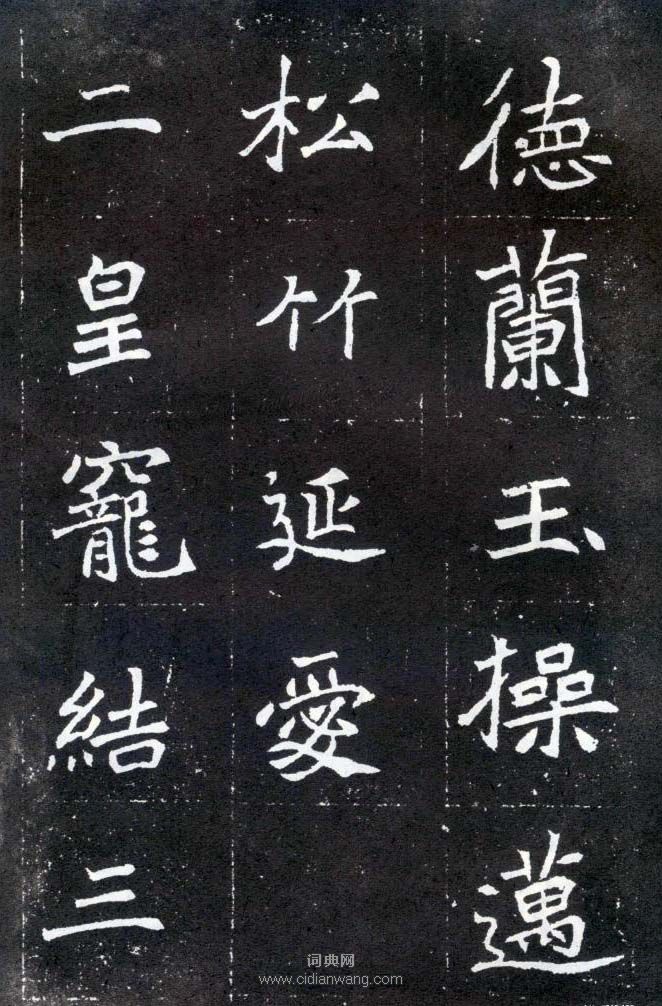 德蘭玉操邁
松竹延愛
二皇寵結三
词典网
www.cidianwang.com